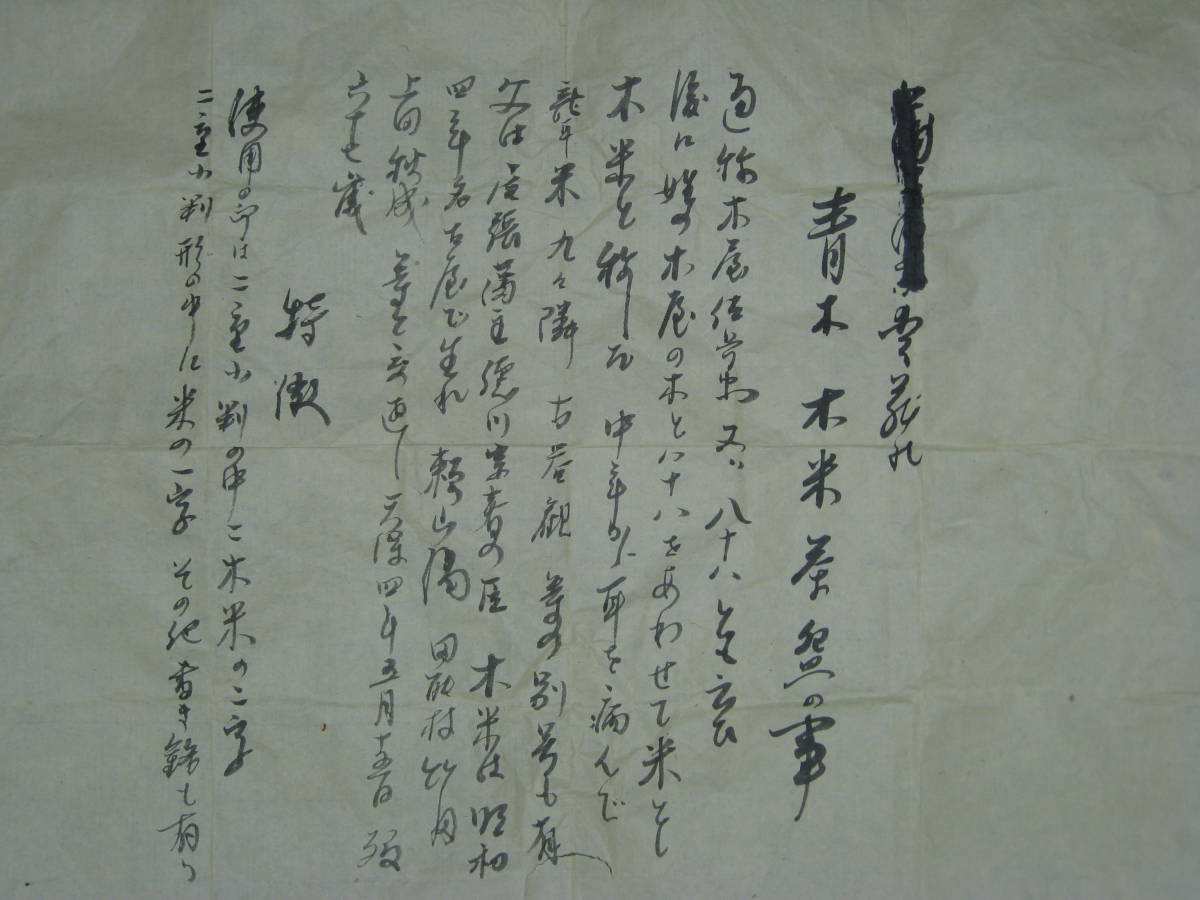 愛蔵の
青木木米茶盌の事
通称木屋佐兵衛 又は八十八とも云ひ
後に姓の木屋の木と八十八をあわせて米とし
木米と称した 中年から耳を病んで
聾米 九々隣 古器観 等の別号も有
父は尾張藩主徳川宗春の臣 木米は明和
四年名古屋で生れ 頼山陽 田能村竹田
上田秋成 等と交遊し 天保四年五月十五日 歿
六十七歳
特徴
使用の印は二重小判の中に木米の二字
二重小判形の中に米の一字 その他書き銘も有り